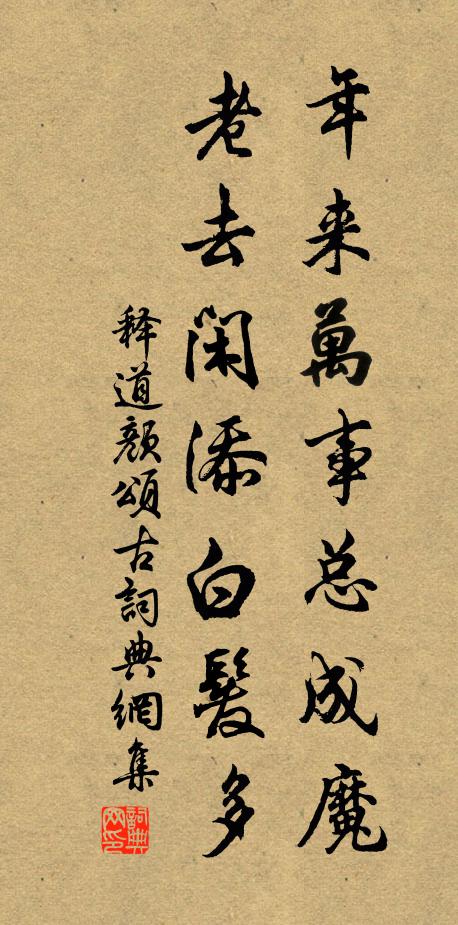 年来萬事总成魔
老去閑添白髮多
释道颜頌古詞典網集
詞典网印